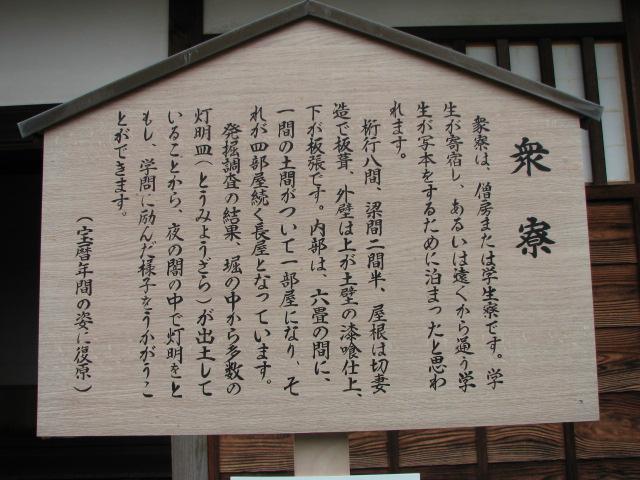 衆寮
衆寮は、僧房または学生寮です。学
生が寄宿し、あるいは遠くから通う学
生が写本をするために泊まったと思わ
れます。
桁行八間、梁間二間半、屋根は切妻
造で板葺、外壁は上が土壁の漆喰仕上、
下が板張です。内部は、六畳の間に、
一間の土間がついて一部屋になり、そ
れが四部屋続く長屋となっています。
発掘調査の結果、堀の中から多数の
灯明皿（とうみょうざら）が出土して
いることから、夜の闇の中で灯明をと
もし、学問に励んだ様子をうかがうこ
とができます。
（宝暦年間の姿に復原）